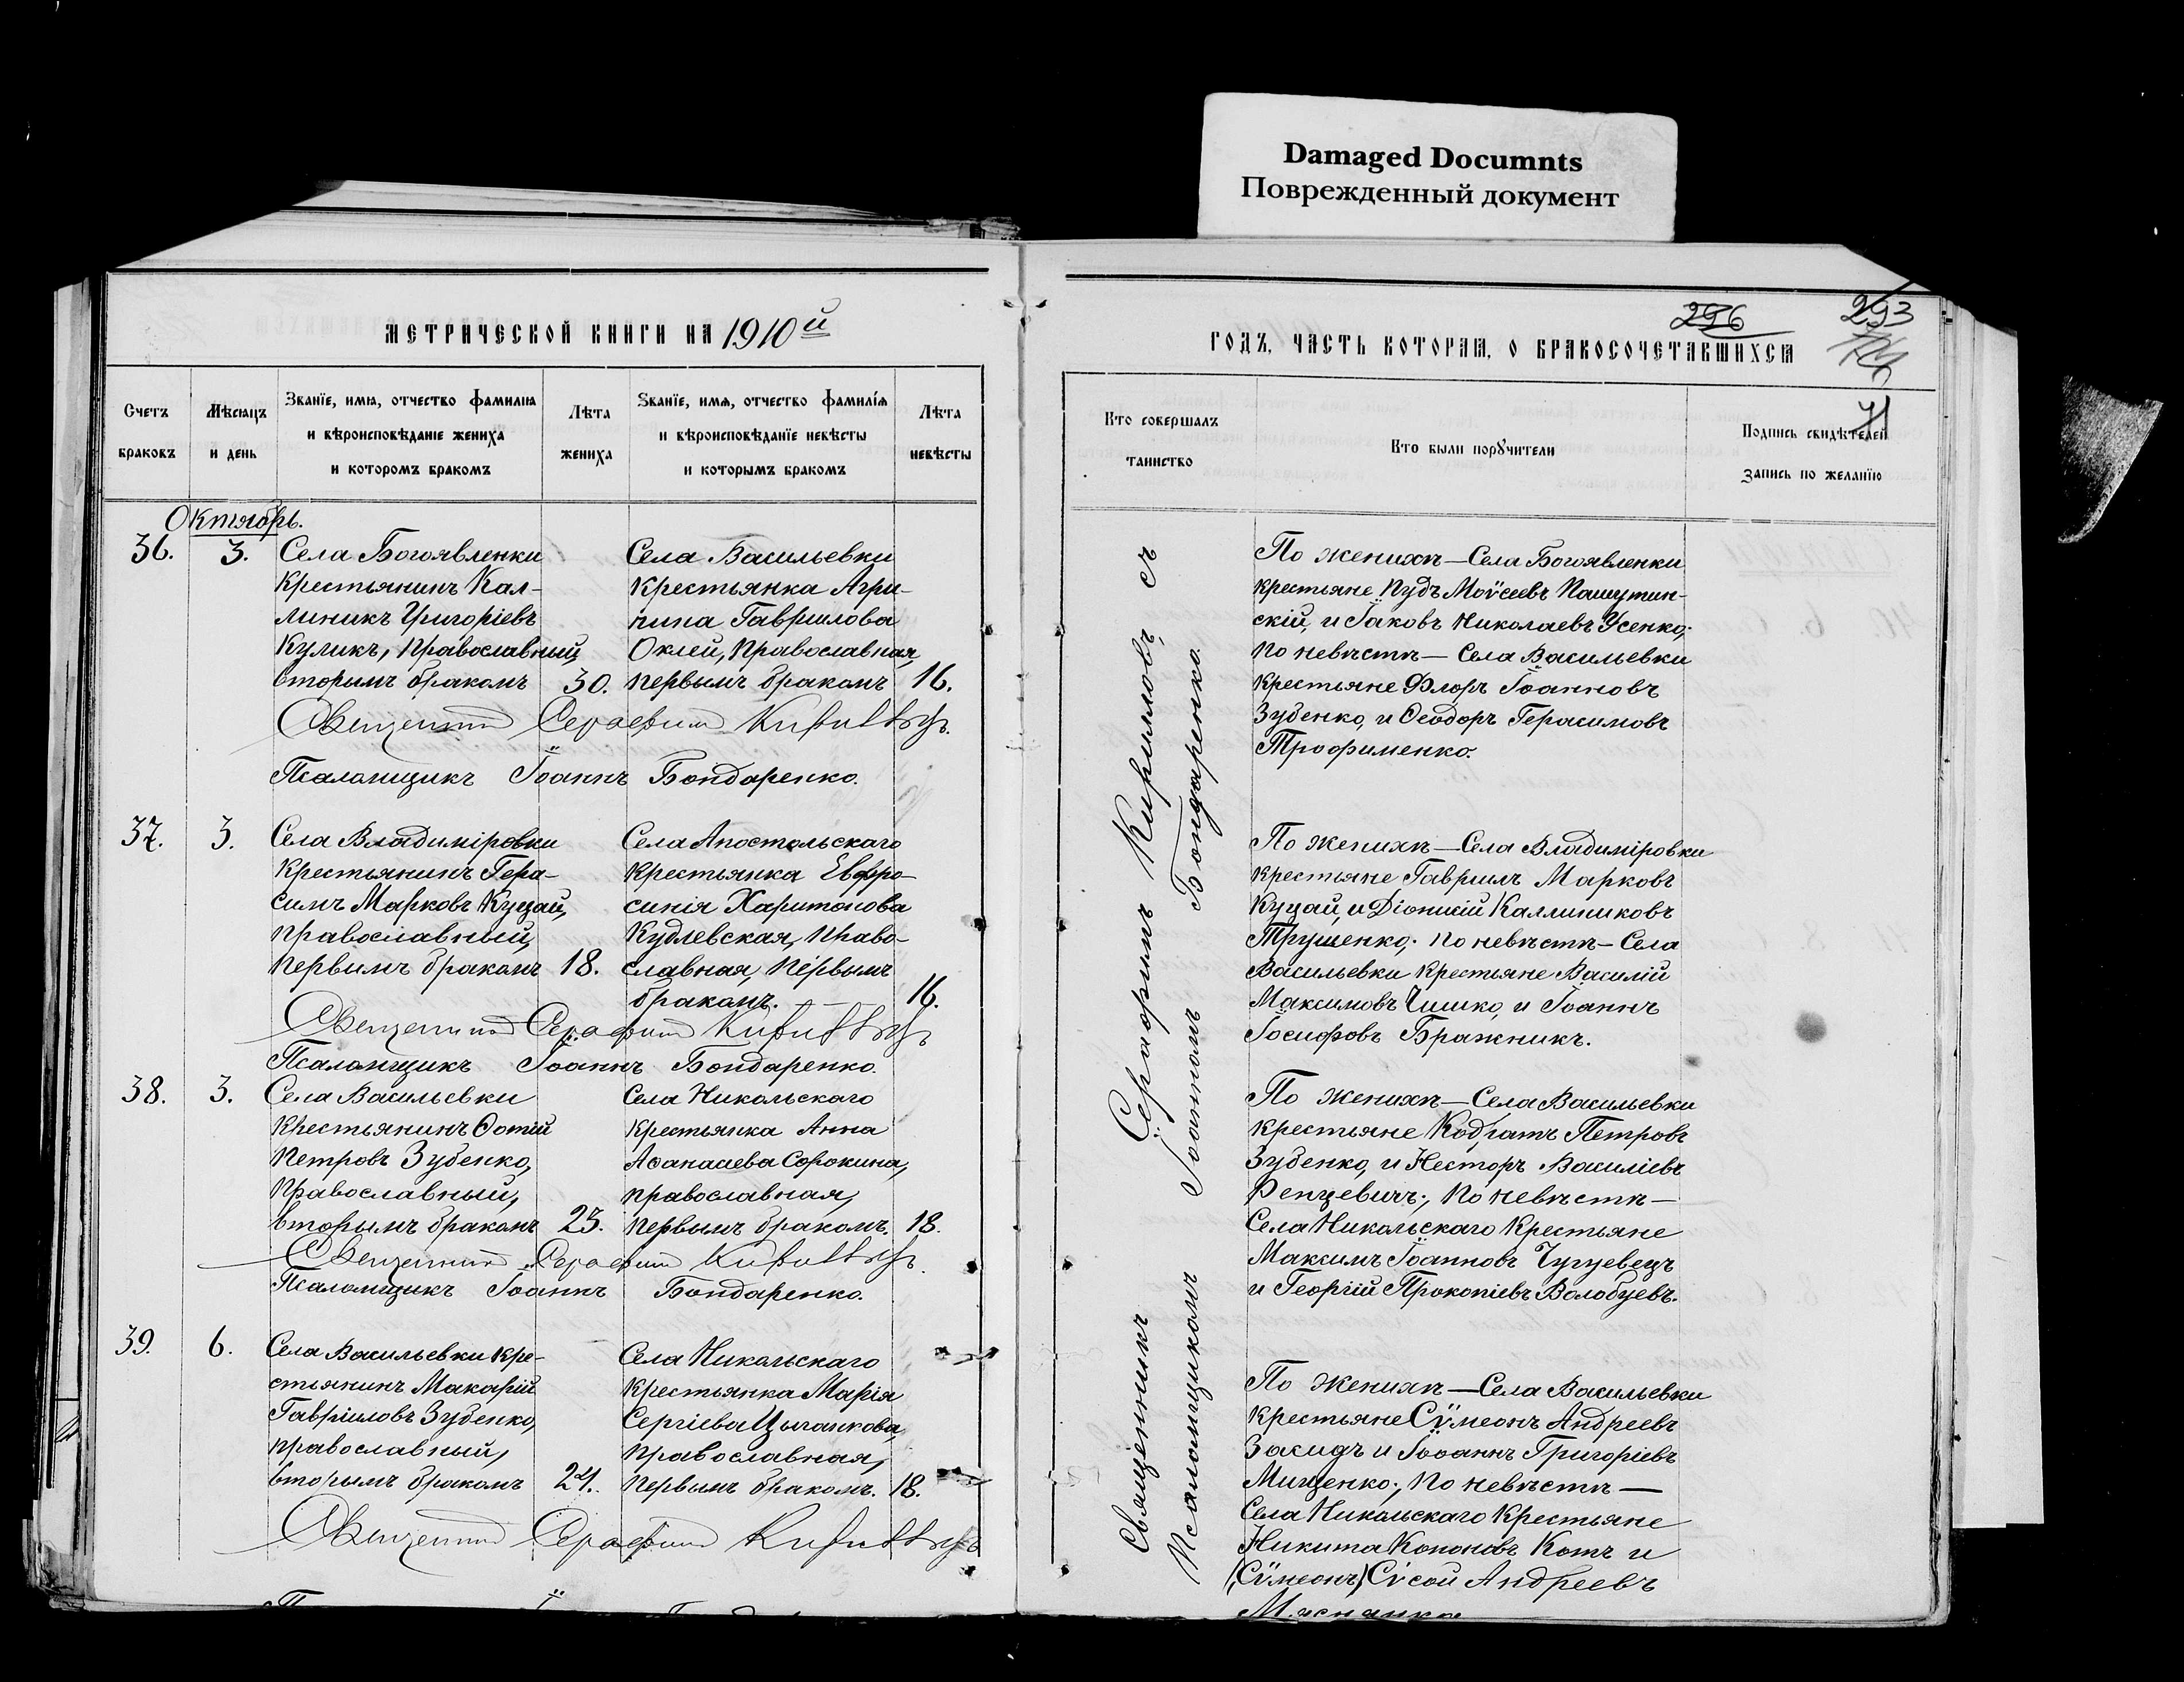 Damaged Documnts
Поврежденный документ
МЕТРИЧЕСКОЙ КНИГИ НА 1910й
Счетъ браковъ
Мѣсяцъ и день
Званіе, имя, отчество фамилія
и вѣроисповѣданіе жениха
и которомъ бракомъ
Лѣта жениха
Званіе, имя, отчество фамилія
и вѣроисповѣданіе невѣсты
и которымъ бракомъ
Лѣта невѣсты
Октябрь.
36.
3.
Села Богоявленки
крестьянинъ Кал-
линикъ Григоріевъ
Куликъ, православный,
вторымъ бракомъ
30.
Села Васильевки
крестьянка Агри-
пина Гавриилова
Оклей, православная,
первымъ бракомъ
16.
Священникъ Серафимъ Кирилловъ
Псаломщикъ Іоаннъ Бондаренко.
37.
3.
Села Владиміровки
крестьянинъ Гера-
симъ Марковъ Куцай,
православный,
первымъ бракомъ
18.
Села Апостольскаго
крестьянка Евфро-
синія Харитонова
Кудлевская, право-
славная, первымъ
бракомъ. —
16.
Священникъ Серафимъ Кирилловъ
Псаломщикъ Іоаннъ Бондаренко.
38.
3.
Села Васильевки
крестьянинъ Ѳотій
Петровъ Зубенко,
православный,
вторымъ бракомъ
25.
Села Никольскаго
крестьянка Анна
Аѳанасіева Сорокина,
православная,
первымъ бракомъ.
18.
Священникъ Серафимъ Кирилловъ
Псаломщикъ Іоаннъ Бондаренко.
39.
6.
Села Васильевки кре-
стьянинъ Макарій
Гавріиловъ Зубенко,
православный,
вторымъ бракомъ
24.
Села Никольскаго
крестьянка Марія
Сергіева Цыганкова,
православная,
первымъ бракомъ.
18.
Священникъ Серафимъ Кирилловъ
296
293
ГОДЪ, ЧАСТЬ КОТОРАЯ, О БРАКОСОЧЕТАВШИХСЯ
Кто совершалъ
таинство
Кто были поручители
Подпись свидѣтелей
запись по желанію
Священникъ Серафимъ Кирилловъ, съ
Псаломщикомъ Іоанномъ Бондаренко.
По женихѣ — Села Богоявленки
крестьяне Пудъ Моѵсеевъ Пашутин-
скій, и Іаковъ Николаевъ Усенко;
по невѣстѣ — Села Васильевки
крестьяне Флоръ Іоанновъ
Зубенко, и Ѳеодоръ Герасимовъ
Трофименко.
По женихѣ — Села Владиміровки
крестьяне Гавриилъ Марковъ
Куцай, и Діонисій Каллиниковъ
Трушенко; по невѣстѣ — Села
Васильевки крестьяне Василій
Максимовъ Чишко, и Іоаннъ
Іосифовъ Бражникъ.
По женихѣ — Села Васильевки
крестьяне Кодратъ Петровъ
Зубенко, и Несторъ Василіевъ
Репцевичъ; по невѣстѣ —
Села Никольскаго крестьяне
Максимъ Іоанновъ Чугуевецъ
и Георгій Прокопіевъ Волобуевъ.
По женихѣ — Села Васильевки
крестьяне Сѵмеонъ Андреевъ
Закидъ и Іоаннъ Григоріевъ
Мищенко; по невѣстѣ —
Села Никольскаго крестьяне
Никита Кононовъ Котъ и
(Сѵмеонъ) Сѵсой Андреевъ